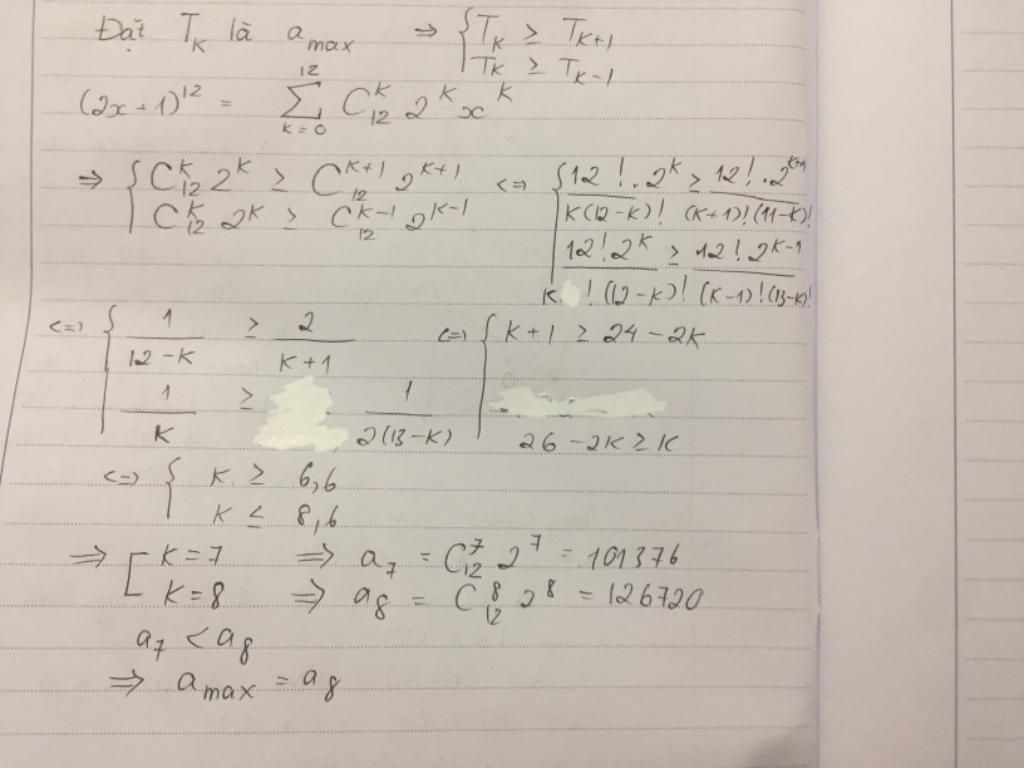 Đặt T_K là a_max => { T_K ≥ T_K+1
T_K ≥ T_K-1
(2x+1)^12 = 12 Σ k=0 C_12^K 2^K x^K
=> { C_12^K 2^K ≥ C_12^K+1 2^K+1 <=> { 12!.2^K / K(12-K)! ≥ 12!.2^K+1 / (K+1)!(11-K)!
C_12^K 2^K ≥ C_12^K-1 2^K-1 12!2^K / K!(12-K)! ≥ 12!2^K-1 / (K-1)!(13-K)!
<=> { 1 / 12-K ≥ 2 / K+1 <=> { K+1 ≥ 24-2K
1 / K ≥ 1 / 2(13-K) 26-2K ≥ K
<=> { K ≥ 6,6
K ≤ 8,6
=> [ K=7 => a_7 = C_12^7 2^7 = 101376
K=8 => a_8 = C_12^8 2^8 = 126720
a_7 < a_8
=> a_max = a_8